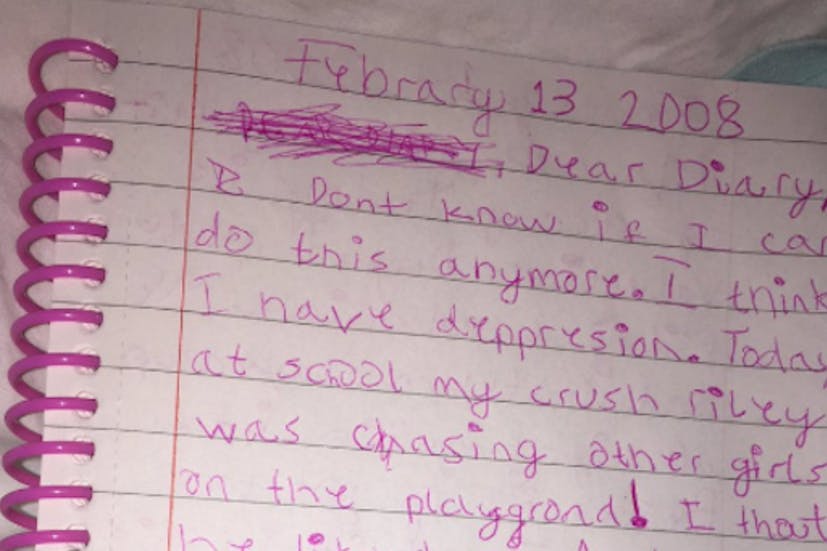 Febrary 13 2008
Dear Diary,
I Dont know if I can
do this anymore. I think
I have deppresion. Today
at school my crush riley
was chasing other girls
on the playgrond! I that